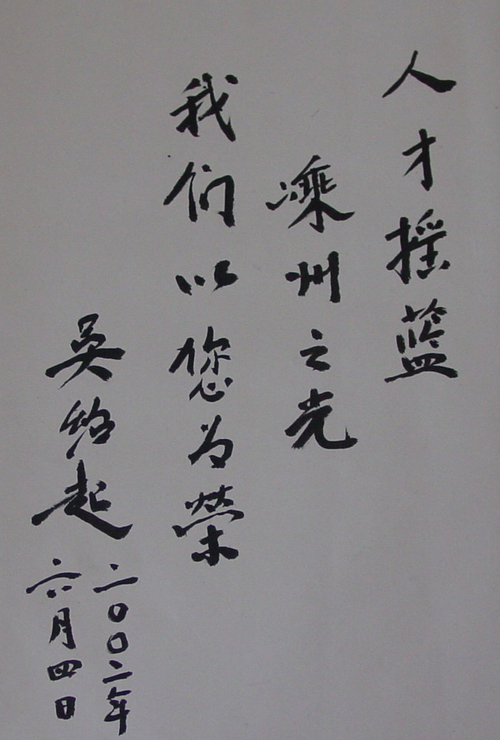 人才摇蓝
滦州之光
我们以您为荣
吴绍起
二〇〇二年
六月四日